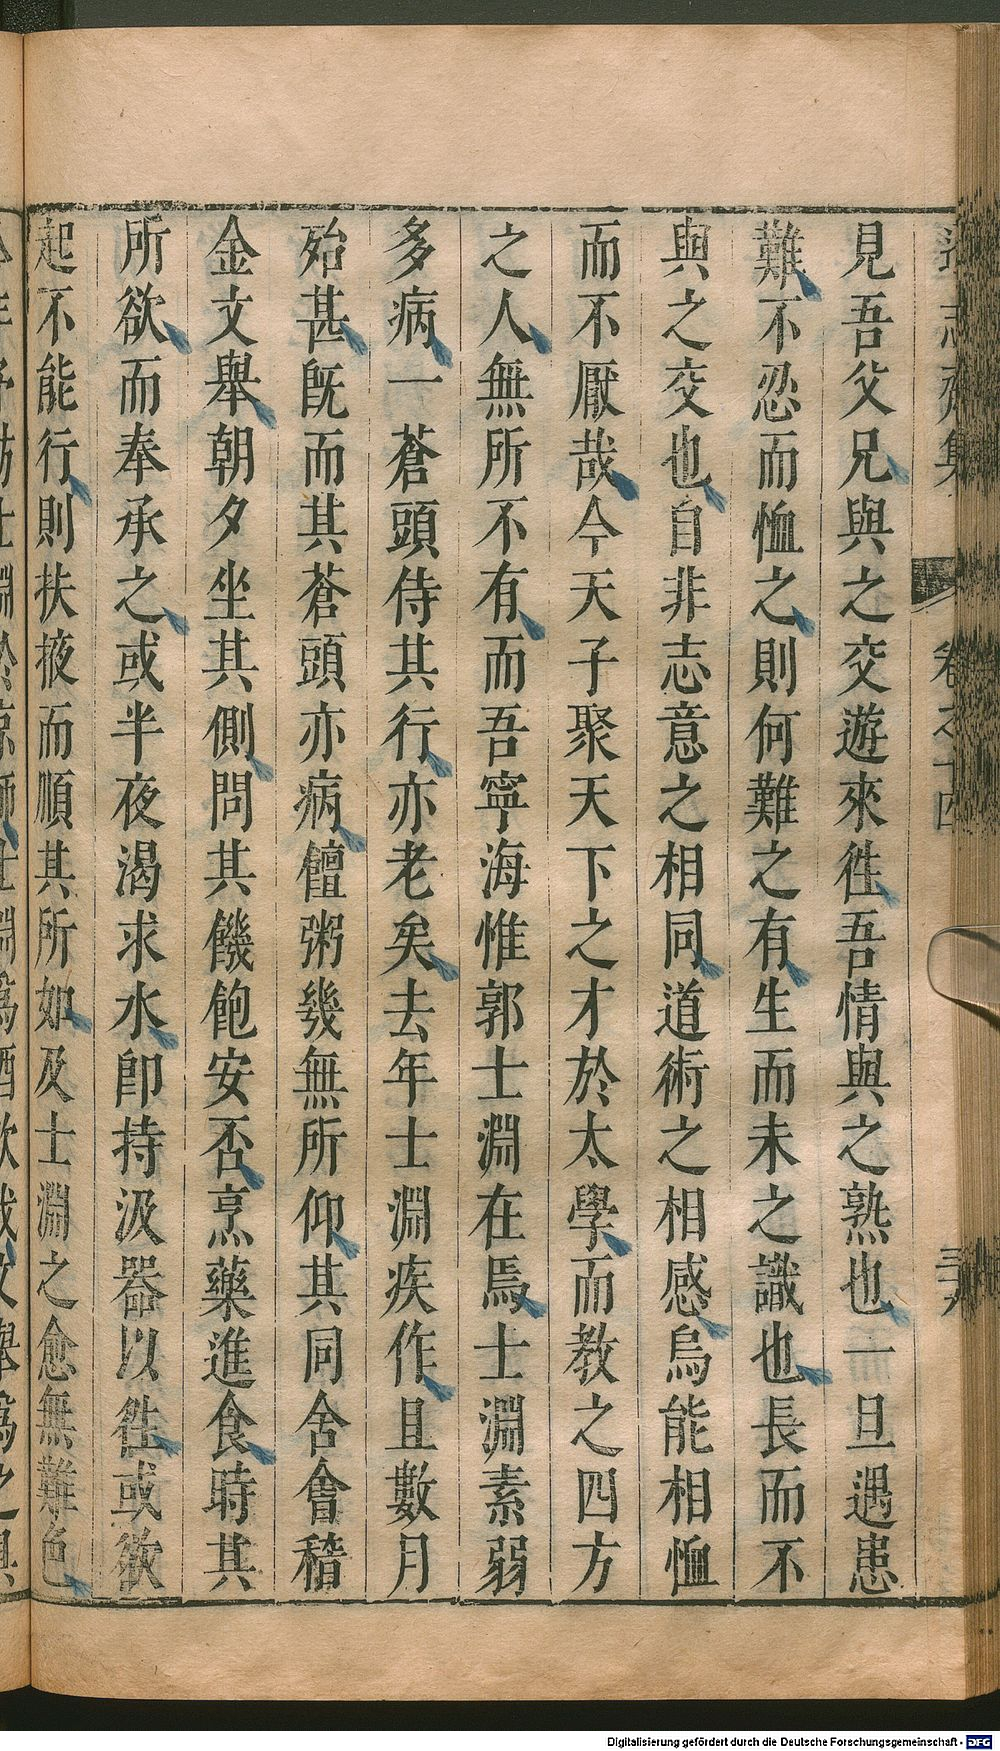 見吾父兄與之交遊來徃吾情與之熟也一旦遇患
難不忍而恤之則何難之有生而未之識也長而不
與之交也自非志意之相同道術之相感烏能相恤
而不厭哉今天子聚天下之才於太學而教之四方
之人無所不有而吾寧海惟郭士淵在焉士淵素弱
多病一蒼頭侍其行亦老矣去年士淵疾作且數月
殆甚旣而其蒼頭亦病饘粥幾無所仰其同舍會稽
金文舉朝夕坐其側問其饑飽安否烹藥進食時其
所欲而奉承之或半夜渴求水卽持汲器以徃或欲
起不能行則扶掖而順其所如及士淵之愈無難色
Digitalisierung gefördert durch die Deutsche Forschungsgemeinschaft - DFG